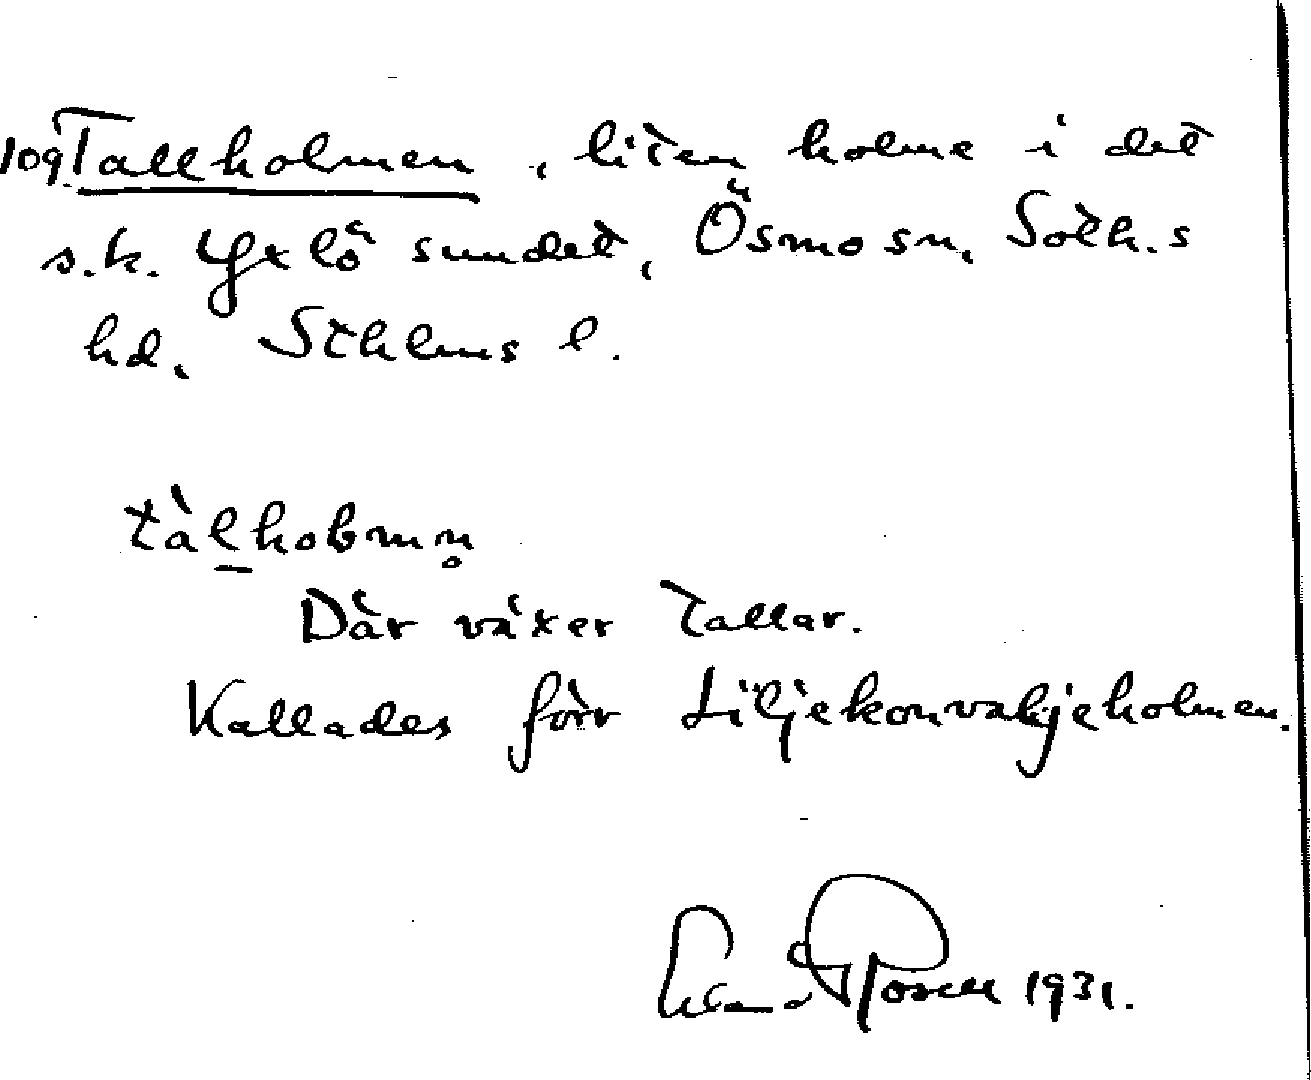 109. Tallholmen, liten holme i det
s.k. Yxlö sundet, Ösmo sn, Soth.s
hd, Sthlms l.
tàlholmn̥
Där växer tallar.
Kallades förr Liljekonvaljeholmen.
1931.